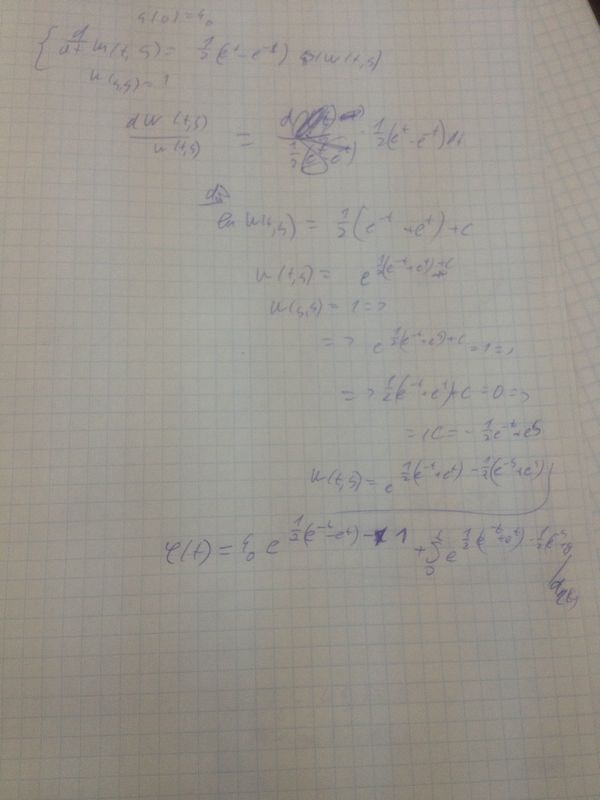 φ(0) = φ₀
{ d/dt w(t,s) = 1/2 (e^t - e^-t) w(t,s)
w(s,s) = 1
dw(t,s) / w(t,s) = 1/2 (e^t - e^-t) dt
ln w(t,s) = 1/2 (e^-t + e^t) + c
w(t,s) = e^(1/2(e^-t + e^t) + c)
w(s,s) = 1 =>
=> e^(1/2(e^-s + e^s) + c) = 1 =>
=> 1/2 (e^-t + e^t) + c = 0 =>
=> c = - 1/2 (e^-s + e^s)
w(t,s) = e^(1/2(e^-t + e^t) - 1/2(e^-s + e^s))
φ(t) = φ₀ e^(1/2(e^-t + e^t) - 1) + ∫₀^t e^(1/2(e^-t + e^t) - 1/2(e^-s